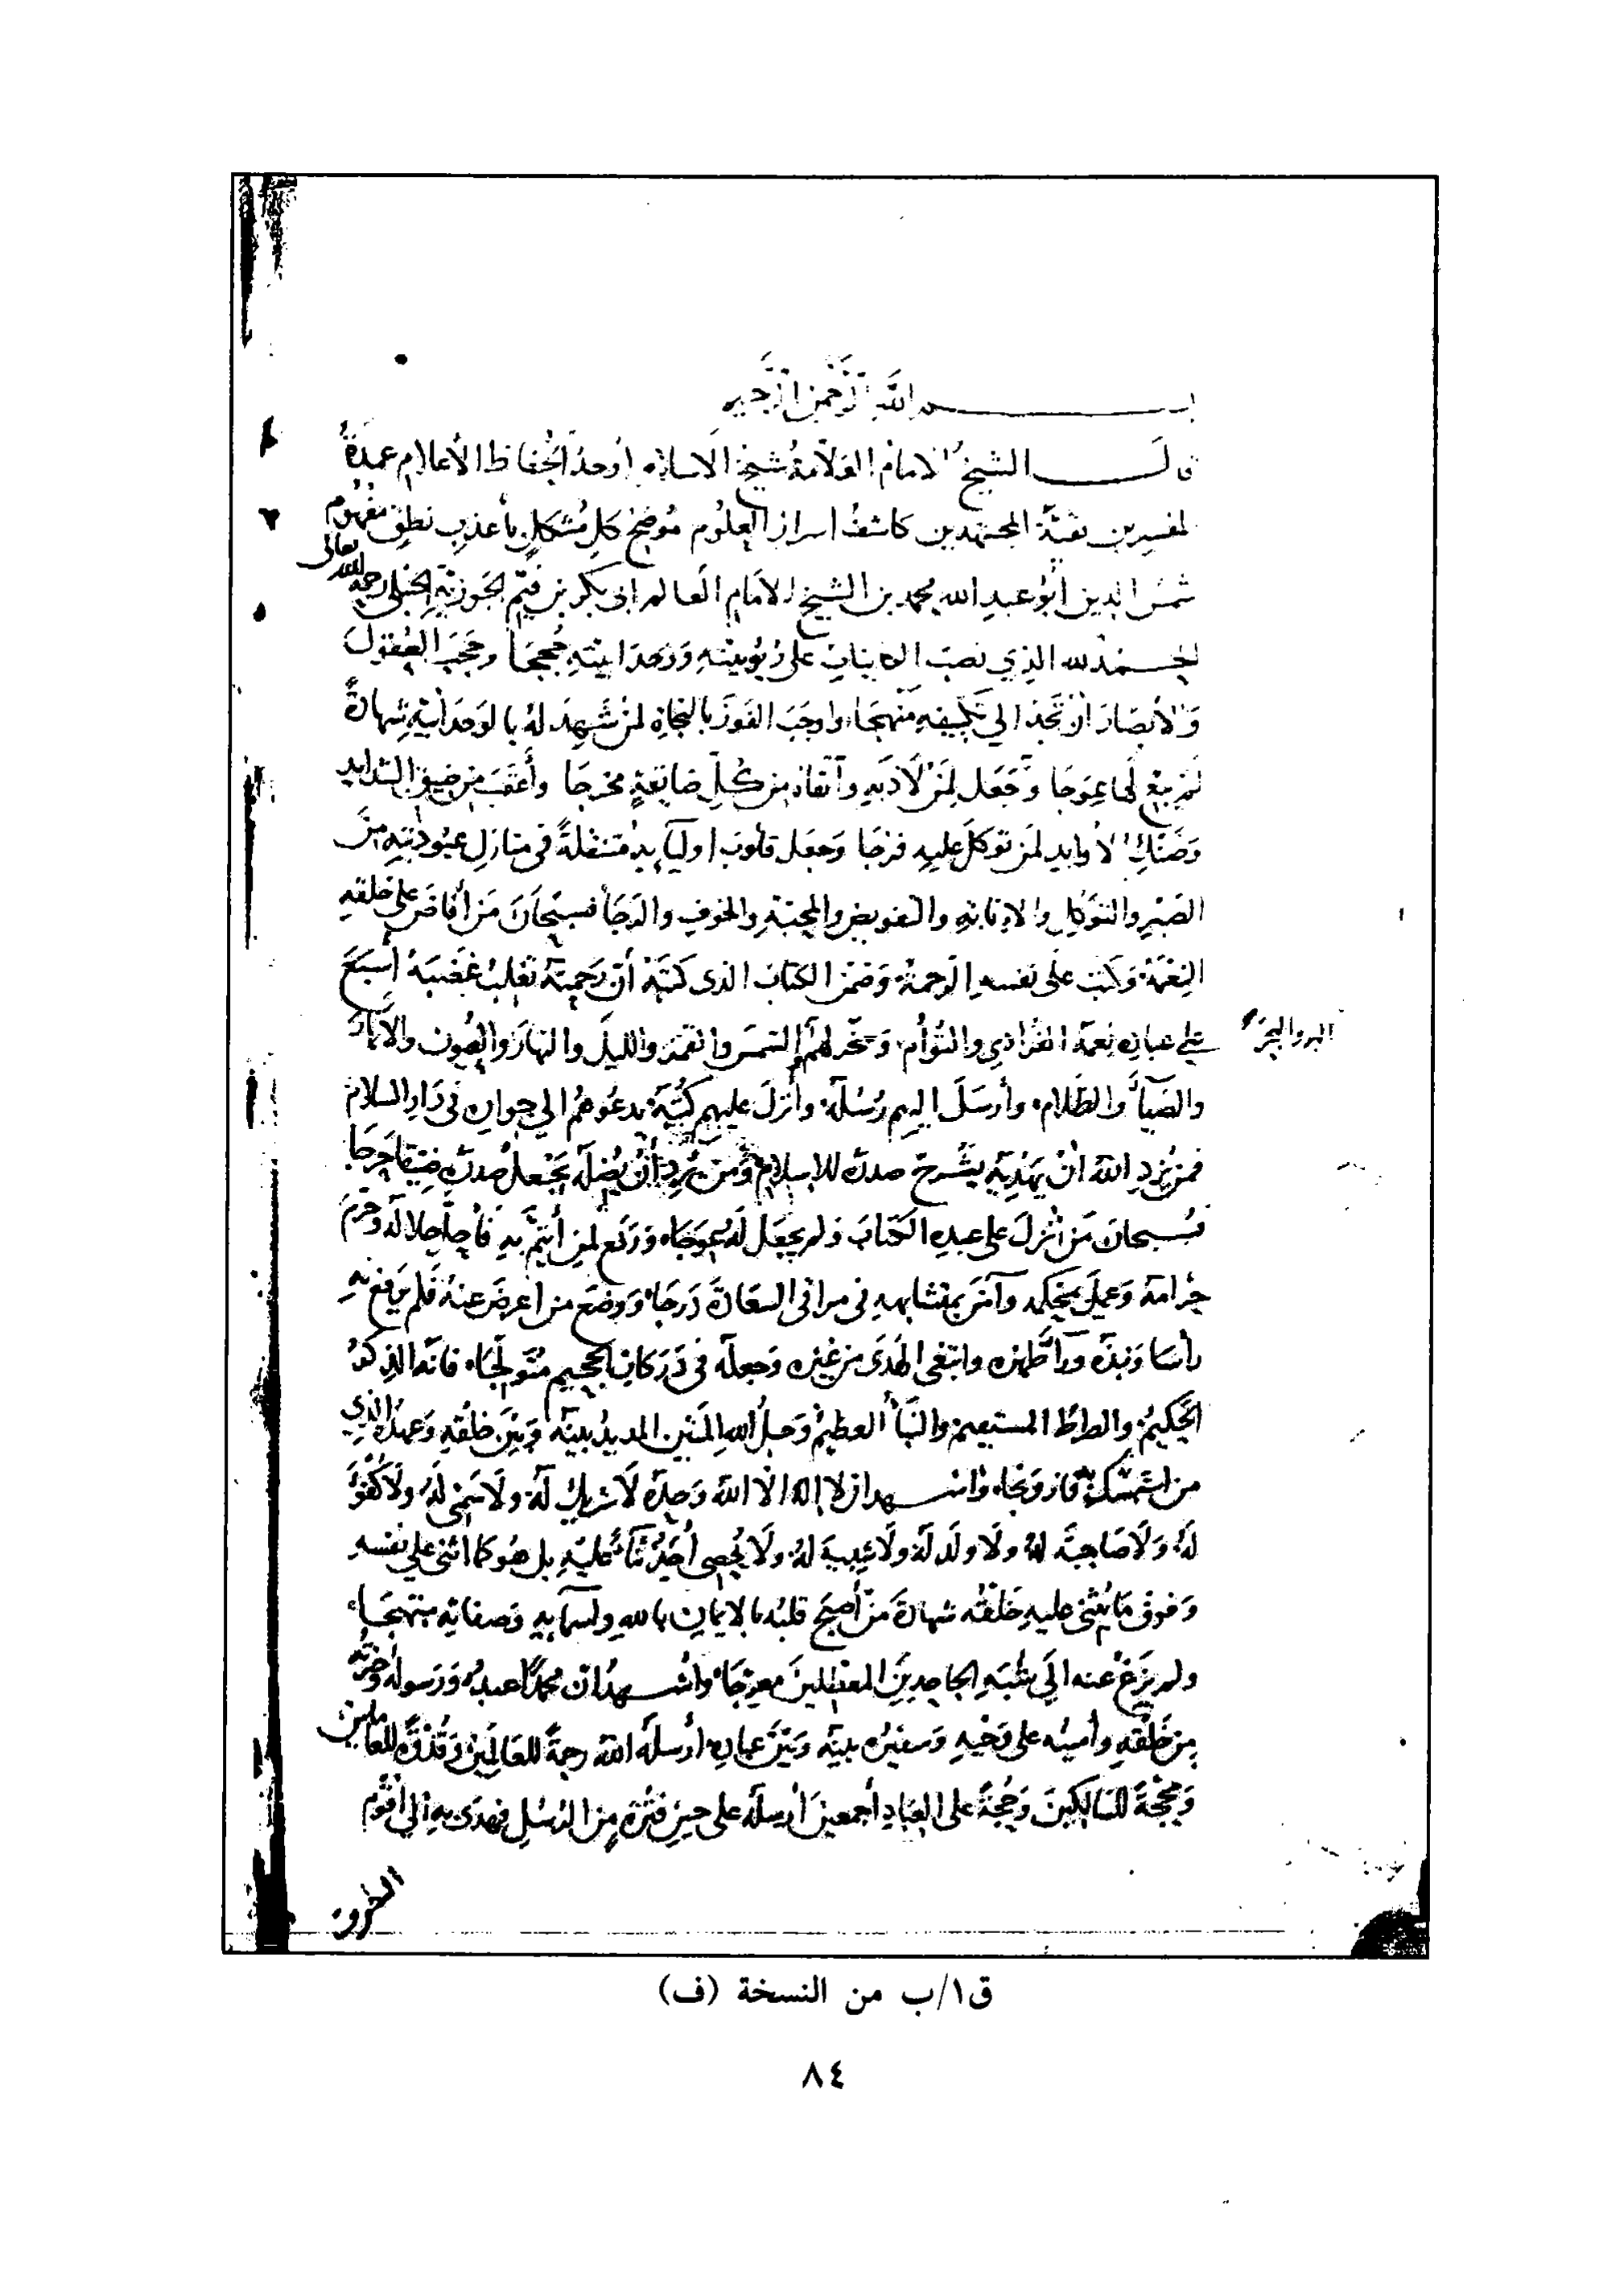 بسم الله الرحمن الرحيم
قال الشيخ الامام العلامة شيخ الاسلام أوحد الحفاظ الأعلام عمدة
المفسرين بقية المجتهدين كاشف أسرار العلوم موضح كل مشكل بأعذب نطق مفهوم
شمس الدين أبو عبد الله محمد بن الشيخ الامام العالم ابي بكر بن قيم الجوزية الحنبلي رحمه الله تعالى
الحمد لله الذي نصب الكاينات على ربوبيته ووحدانيته حججا وحجب العقول
والأبصار أن تجد الي تكييفه منهجا وأوجب الفوز بالنجاة لمن شهد له بالوحدانية شهادة
لم يبغ لها عوجا وجعل لمن لاذ به واتقاه من كل ضايقة مخرجا وأعقب من ضيق الشدايد
وضنك الأوابد لمن توكل عليه فرجا وجعل قلوب أوليآيه متنقلة في منازل عبوديته من
الصبر والتوكل والانابة والتفويض والمحبة والخوف والرجا فسبحان من أفاض على خلقه
النعمة وكتب على نفسه الرحمة وضمن الكتاب الذي كتبه أن رحمته تغلب غضبه أسبغ
على عباده نعمه الفرادي والتوأم وسخر لهم البر والبحر والشمس والقمر والليل والنهار والعيون والأنهار
والضيآ والظلام وأرسل اليهم رسله وأنزل عليهم كتبه يدعوهم الي جواره في دار السلام
فمن يرد الله أن يهديه يشرح صدره للإسلام ومن يرد أن يضله يجعل صدره ضيقا حرجا
فسبحان من أنزل على عبده الكتاب ولم يجعل له عوجا ورفع لمن أتم به فأحل حلاله وحرم
حرامه وعمل بمحكمه وآمن بمتشابهه في مراقي السعادة درجا ووضع من اعرض عنه فلم يرفع به
رأسا ونبذه ورآ ظهره وابتغى الهدى من غيره وجعله في دركات الجحيم متولجا فانه الذكر
الحكيم والصراط المستقيم والنبأ العظيم وحبل الله المتين المديد بينه وبين خلقه وعهده الذي
من استمسك به فاز ونجا وأشهد ان لا إله الا الله وحده لا شريك له ولا سمي له ولا كفؤ
له ولا صاحبة له ولا ولد له ولا شبيه له ولا يحصي أحد ثنآ عليه بل هو كما اثنى على نفسه
وفوق ما يثني عليه خلقه شهادة من أصبح قلبه بالايمان بالله وأسمآيه وصفاته مبتهجا
ولم يزغ عنه الي شبه الجاحدين المعطلين معرجا وأشهد أن محمدا عبده ورسوله وخيرته
من خلقه وأمينه على وحيه وسفيره بينه وبين عباده أرسله الله رحمة للعالمين وقدوة للعاملين
ومحجة للسالكين وحجة على العباد أجمعين أرسله على حين فترة من الرسل فهدى به إلى أقوم
الطرق
ق١/ب من النسخة (ف)
٨٤